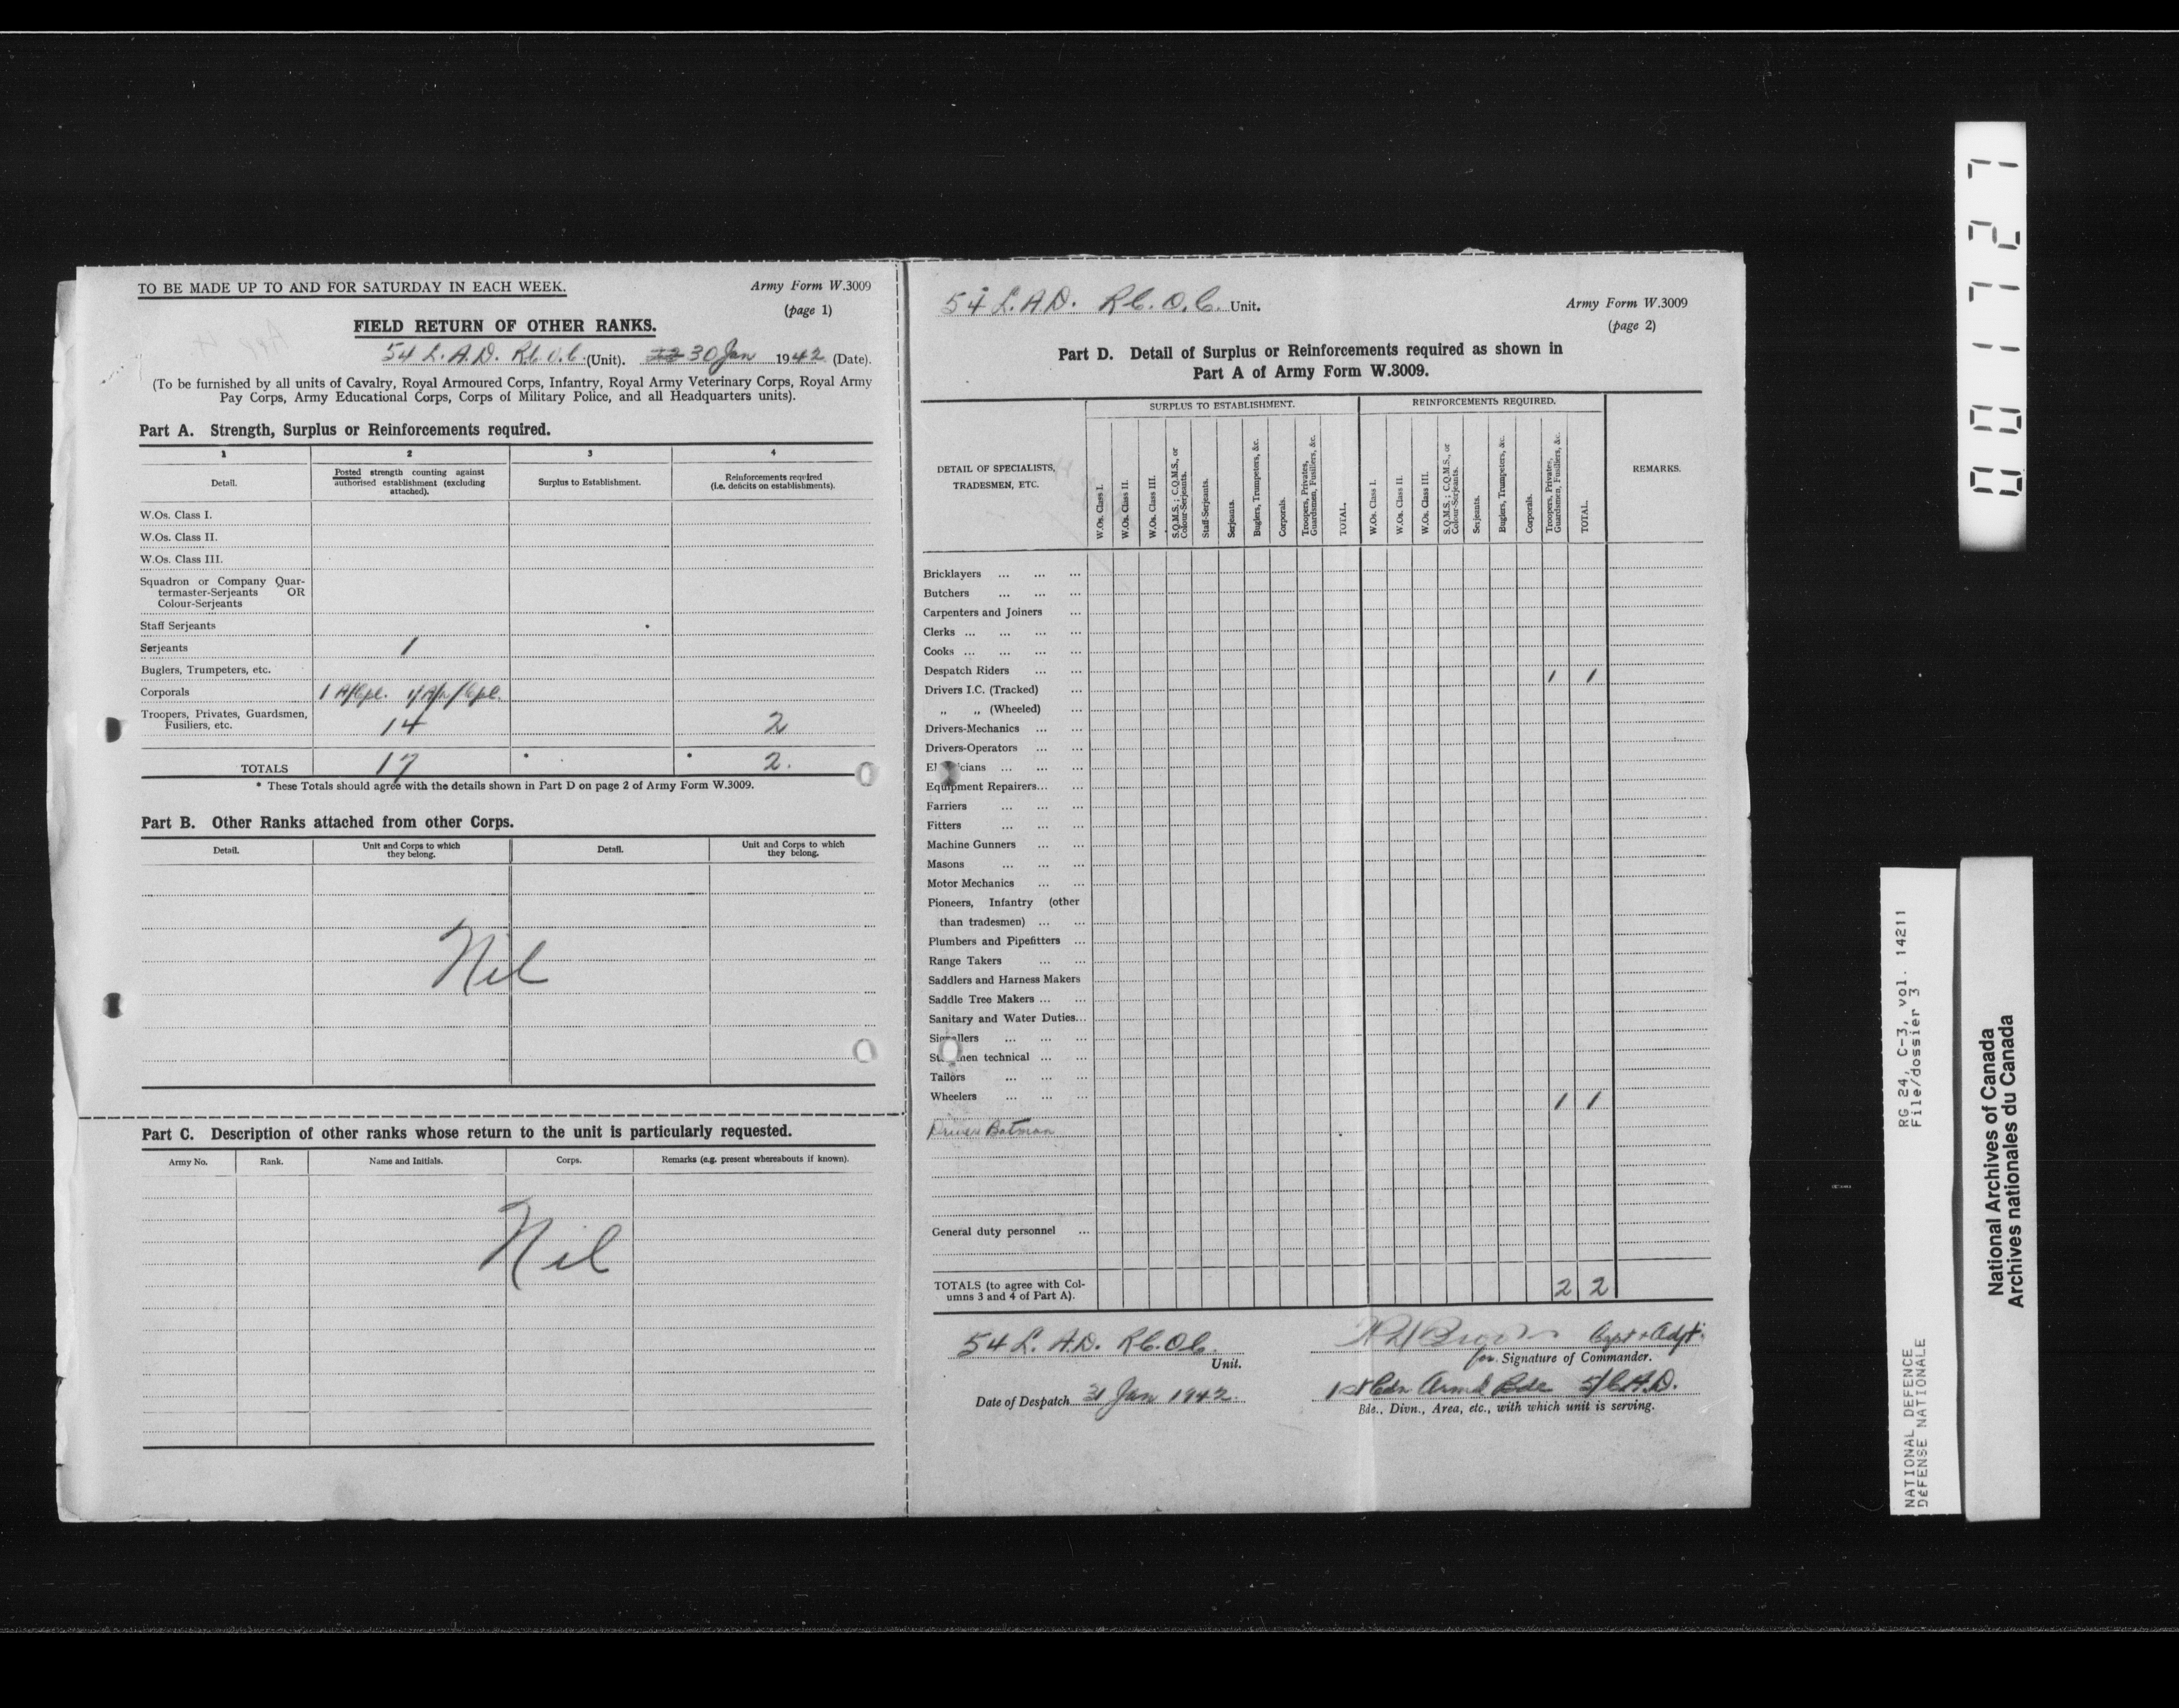 TO BE MADE UP TO AND FOR SATURDAY IN EACH WEEK.
Army Form W.3009
(page 1)
FIELD RETURN OF OTHER RANKS.
54 L.A.D. R.C.O.C. (Unit). 30 Jan 1942 (Date).
(To be furnished by all units of Cavalry, Royal Armoured Corps, Infantry, Royal Army Veterinary Corps, Royal Army
Pay Corps, Army Educational Corps, Corps of Military Police, and all Headquarters units).
Part A. Strength, Surplus or Reinforcements required.
1 2 3 4
Detail.
Posted strength counting against
authorised establishment (excluding
attached).
Surplus to Establishment.
Reinforcements required
(i.e. deficits on establishments).
W.Os. Class I.
W.Os. Class II.
W.Os. Class III.
Squadron or Company Quar-
termaster-Serjeants OR
Colour-Serjeants
Staff Serjeants
Serjeants 1
Buglers, Trumpeters, etc.
Corporals 1 A/Cpl.
Troopers, Privates, Guardsmen,
Fusiliers, etc. 14 2
TOTALS 17 * * 2.
* These Totals should agree with the details shown in Part D on page 2 of Army Form W.3009.
Part B. Other Ranks attached from other Corps.
Detail.
Unit and Corps to which
they belong.
Detail.
Unit and Corps to which
they belong.
Nil
Part C. Description of other ranks whose return to the unit is particularly requested.
Army No. Rank. Name and Initials. Corps. Remarks (e.g. present whereabouts if known).
Nil
54 L.A.D. R.C.O.C. Unit.
Army Form W.3009
(page 2)
Part D. Detail of Surplus or Reinforcements required as shown in
Part A of Army Form W.3009.
DETAIL OF SPECIALISTS,
TRADESMEN, ETC.
SURPLUS TO ESTABLISHMENT.
W.Os. Class I.
W.Os. Class II.
W.Os. Class III.
S.Q.M.S.; C.Q.M.S., or
Colour-Serjeants.
Staff-Serjeants.
Serjeants.
Buglers, Trumpeters, &c.
Corporals.
Troopers, Privates,
Guardsmen, Fusiliers, &c.
TOTAL.
REINFORCEMENTS REQUIRED.
W.Os. Class I.
W.Os. Class II.
W.Os. Class III.
S.Q.M.S.; C.Q.M.S., or
Colour-Serjeants.
Serjeants.
Buglers, Trumpeters, &c.
Corporals.
Troopers, Privates,
Guardsmen, Fusiliers, &c.
TOTAL.
REMARKS.
Bricklayers ... ... ...
Butchers ... ... ...
Carpenters and Joiners ...
Clerks ... ... ... ...
Cooks ... ... ... ...
Despatch Riders ... ... 1 1
Drivers I.C. (Tracked) ...
„ „ (Wheeled) ...
Drivers-Mechanics ... ...
Drivers-Operators ... ...
El cians ... ... ...
Equipment Repairers... ...
Farriers ... ... ...
Fitters ... ... ...
Machine Gunners ... ...
Masons ... ... ...
Motor Mechanics ... ...
Pioneers, Infantry (other
than tradesmen) ... ...
Plumbers and Pipefitters ...
Range Takers ... ...
Saddlers and Harness Makers
Saddle Tree Makers ... ...
Sanitary and Water Duties...
Signallers ... ... ...
St men technical ... ...
Tailors ... ... ...
Wheelers ... ... ... 1 1
Driver Batman
General duty personnel ...
TOTALS (to agree with Col-
umns 3 and 4 of Part A). 2 2
54 L.A.D. R.C.O.C.
Unit.
Capt & Adjt
for Signature of Commander.
Date of Despatch 31 Jan 1942
1st Cdn Armd Bde 5/C.A.D.
Bde., Divn., Area, etc., with which unit is serving.
001727
RG 24, C-3, vol. 14211
File/dossier 3
NATIONAL DEFENCE
DÉFENSE NATIONALE
National Archives of Canada
Archives nationales du Canada